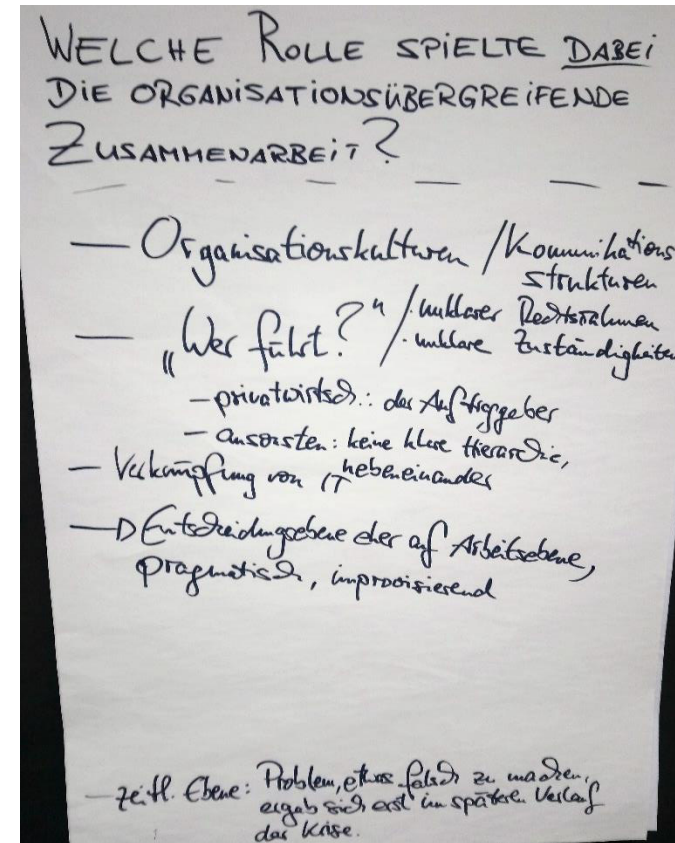 WELCHE ROLLE SPIELTE DABEI
DIE ORGANISATIONSÜBERGREIFENDE
ZUSAMMENARBEIT?
— Organisationskulturen / Kommunikations
strukturen
— „Wer führt?" / · unklarer Rechtsrahmen
· unklare Zuständigkeiten
- privatwirtsch.: der Auftraggeber
- ansonsten: keine klare Hierarchie,
nebeneinander
- Verknüpfung von IT
—D Entscheidungsebene eher auf Arbeitsebene,
pragmatisch, improvisierend
- zeitl. Ebene: Problem, etwas falsch zu machen,
ergab sich erst im späteren Verlauf
der Krise.